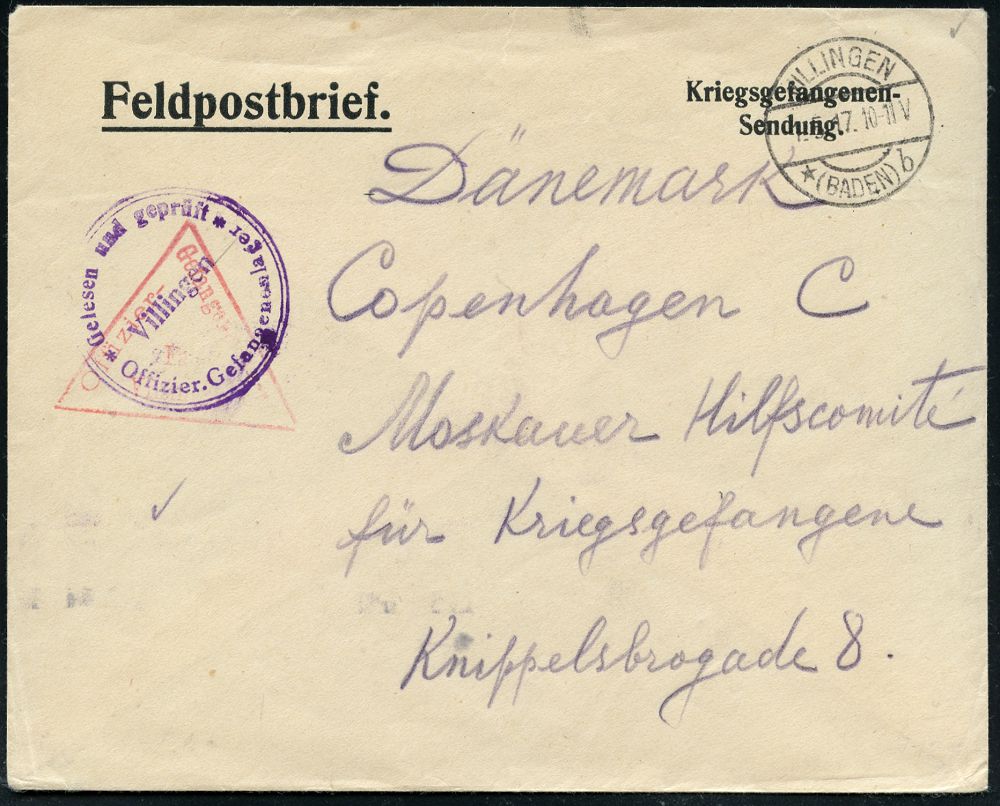 Feldpostbrief.
Kriegsgefangenen-
Sendung.
VILLINGEN
5.17. 10-11 V
* (BADEN) b
Dänemark
Copenhagen C
Moskauer Hilfscomité
für Kriegsgefangene
Knippelsbrogade 8.
* Gelesen und geprüft *
Offizier. Gefangenenlager
Villingen
Offizier-